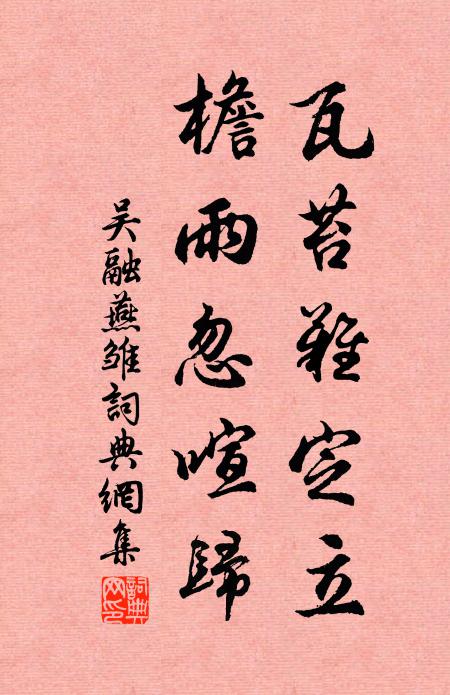 瓦苔難定立
檐雨忽喧歸
吴融燕雏詞典網集
詞典网印